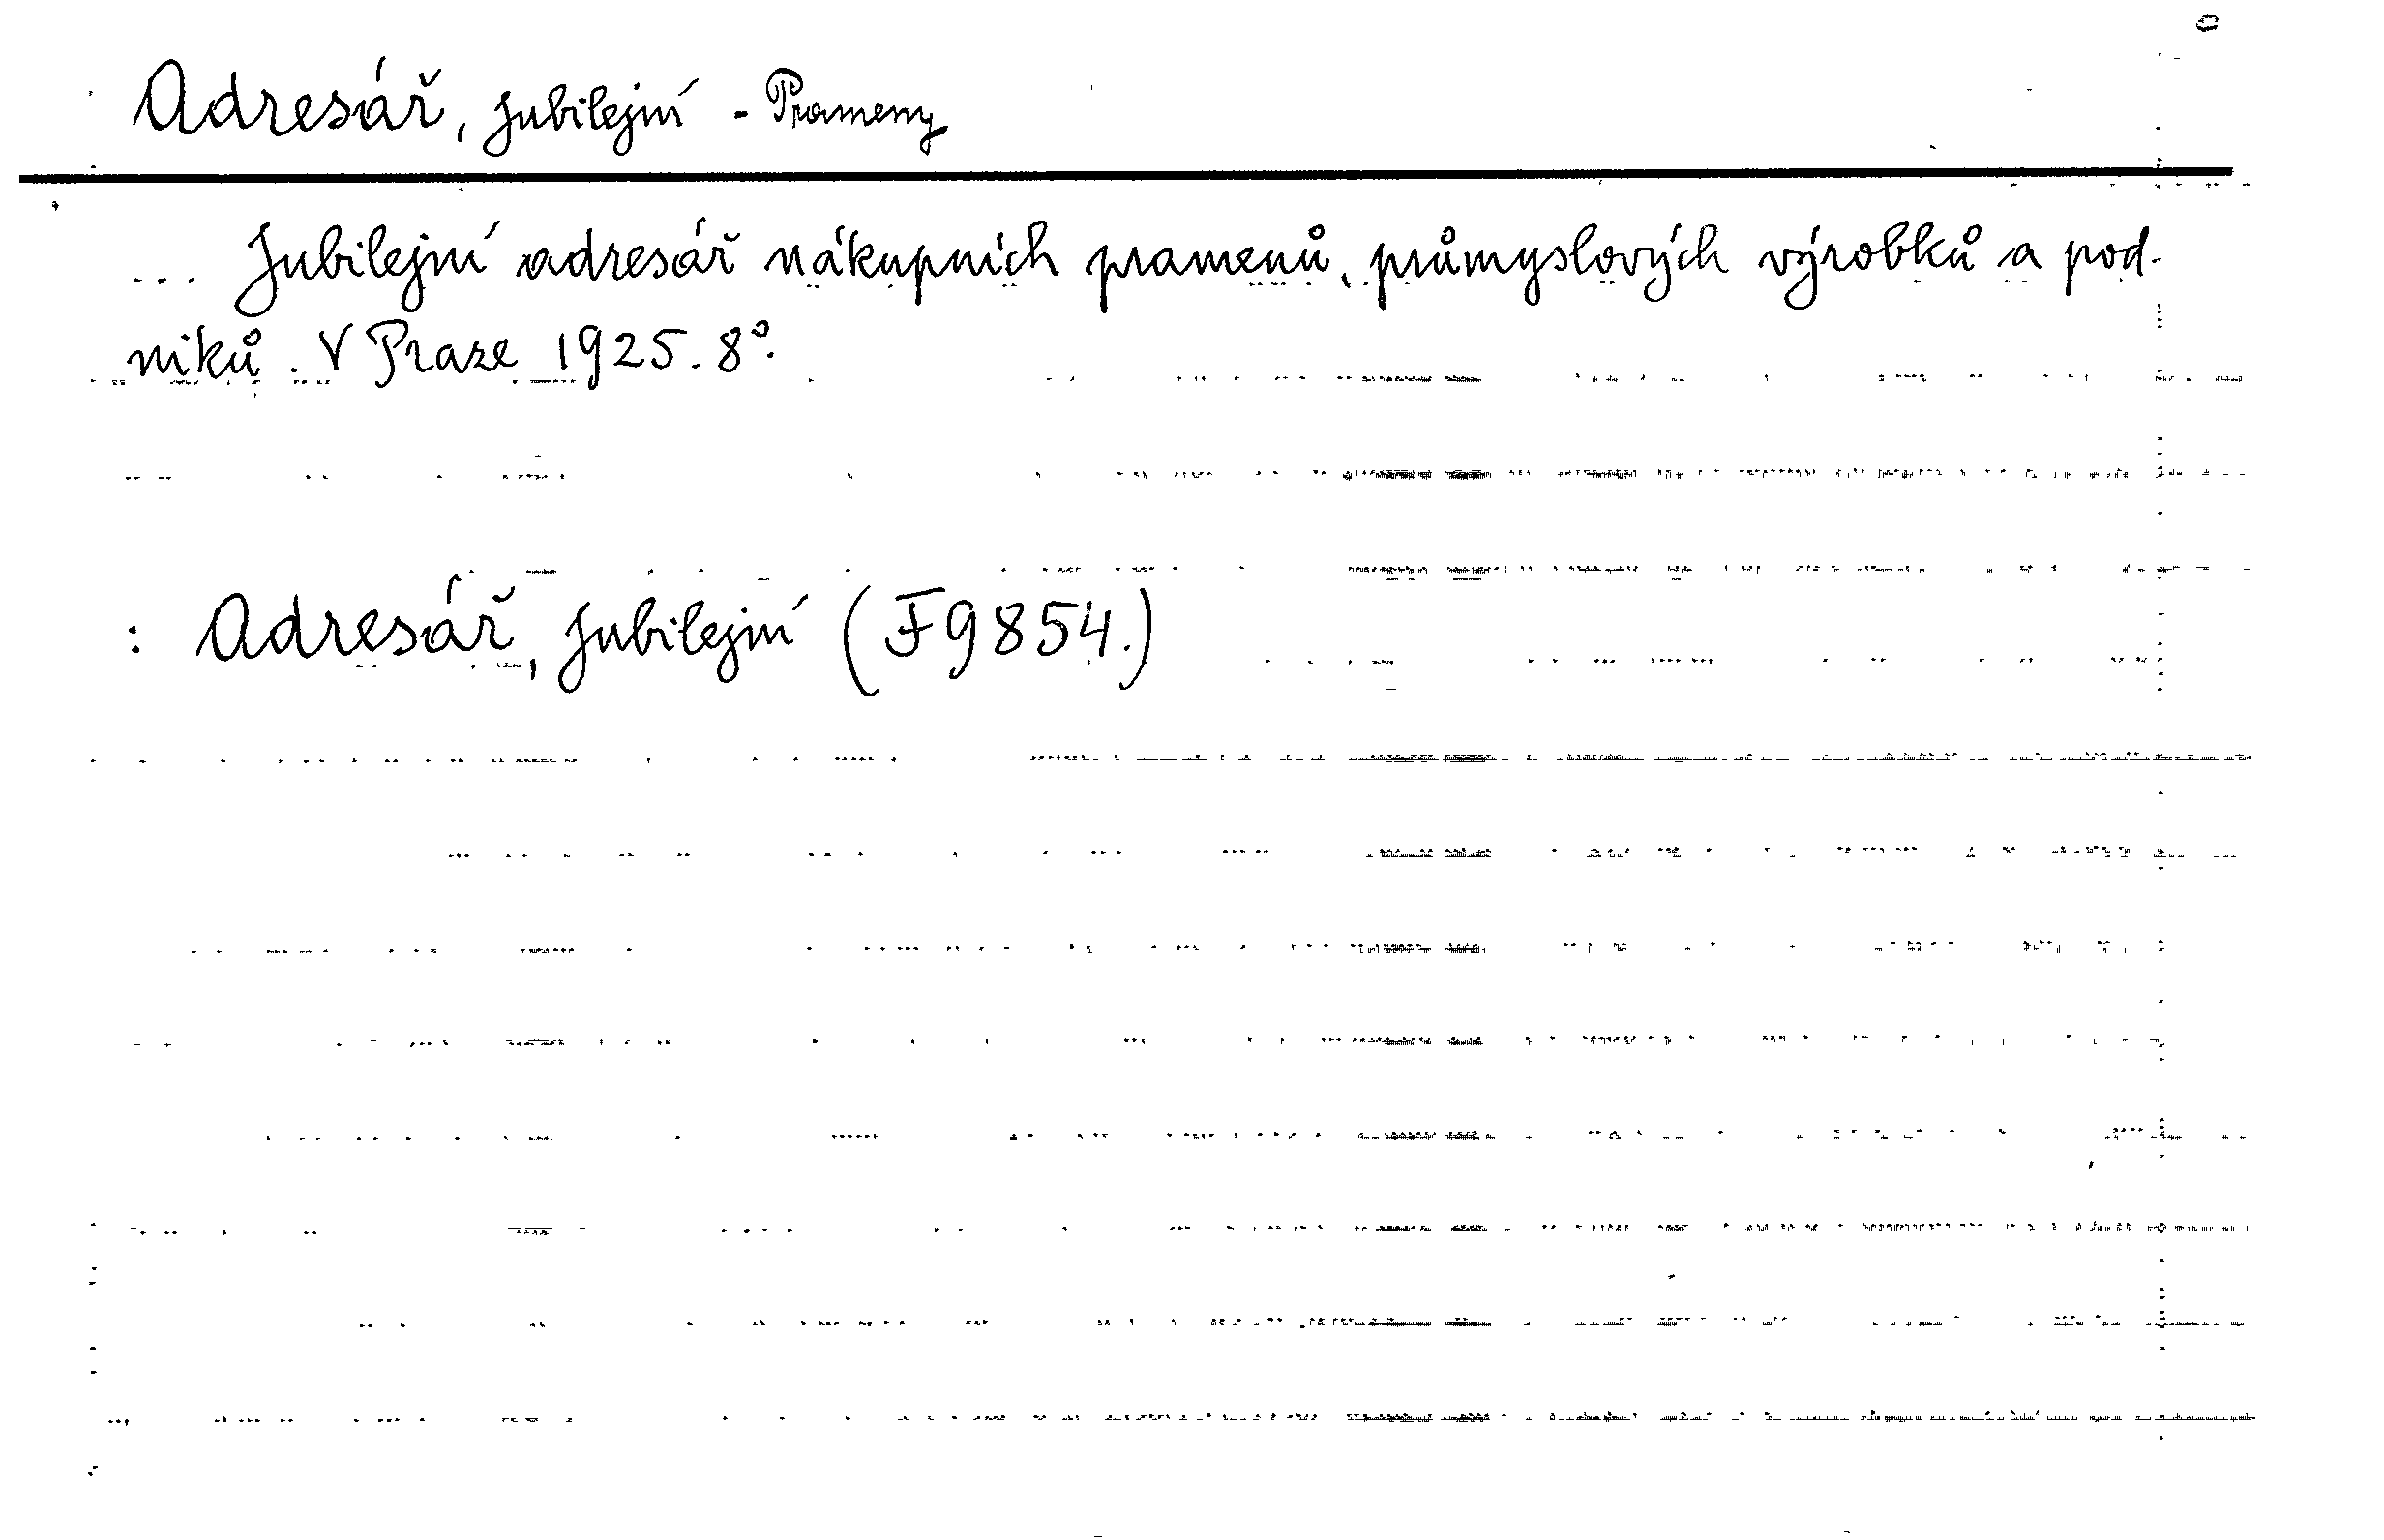 Adresář, jubilejní - Prameny
... Jubilejní adresář nákupních pramenů, průmyslových výrobků a pod-
niků. V Praze 1925. 8°.
: Adresář, jubilejní (F9854.)